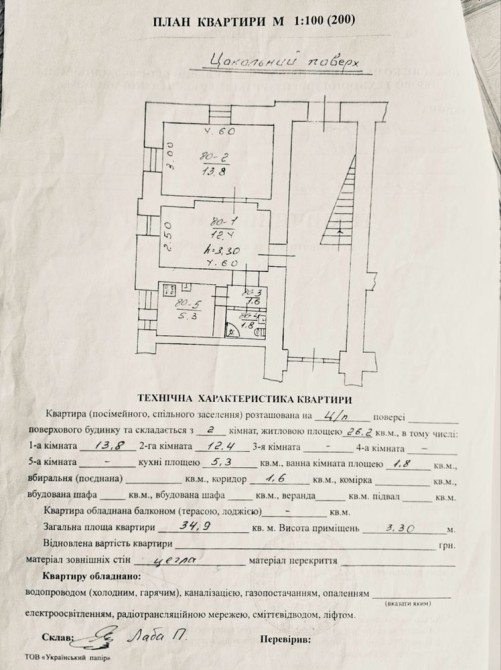 ПЛАН КВАРТИРИ М 1:100 (200)
Цокольний поверх
4.60
3.00
80-2
13.8
80-1
12.4
2.50
h=3.30
4.60
80-3
1.6
80-5
5.3
80-4
1.8
ТЕХНІЧНА ХАРАКТЕРИСТИКА КВАРТИРИ
Квартира (посімейного, спільного заселення) розташована на ц/п поверсі
поверхового будинку та складається з 2 кімнат, житловою площею 26.2 кв.м., в тому числі:
1-а кімната 13,8 2-га кімната 12,4 3-я кімната - 4-а кімната -
5-а кімната - кухні площею 5,3 кв.м., ванна кімната площею 1,8 кв.м.,
вбиральня (поєднана) кв.м., коридор 1,6 кв.м., комірка кв.м.,
вбудована шафа кв.м., вбудована шафа кв.м., веранда кв.м. підвал кв.м.
Квартира обладнана балконом (терасою, лоджією) - кв.м.
Загальна площа квартири 34,9 кв. м. Висота приміщень 3.30 м.
Відновлена вартість квартири грн.
матеріал зовнішніх стін цегла матеріал перекриття
Квартиру обладнано:
водопроводом (холодним, гарячим), каналізацією, газопостачанням, опаленням
(вказати яким)
електроосвітленням, радіотрансляційною мережею, сміттєвідводом, ліфтом.
Склав: Лаба П. Перевірив:
ТОВ «Український папір»